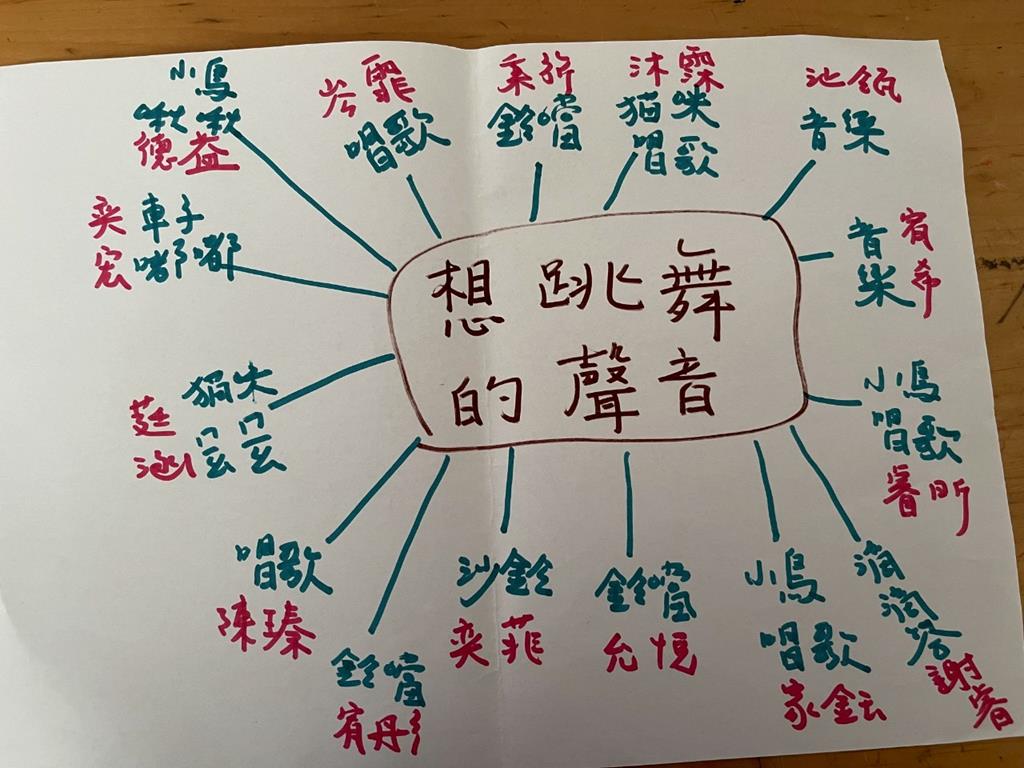 想跳舞
的聲音
小鳥
啾啾
德益
岑霏
唱歌
鈴噹
沐霖
猫咪
唱歌
音樂
宥希
音樂
小鳥
唱歌
睿昕
滴
滴
答
謝睿
小鳥
唱歌
家鋐
鈴噹
允悅
沙鈴
奕菲
鈴噹
宥彤
唱歌
陳瑧
莛涵
奕宏
車子
嘟嘟